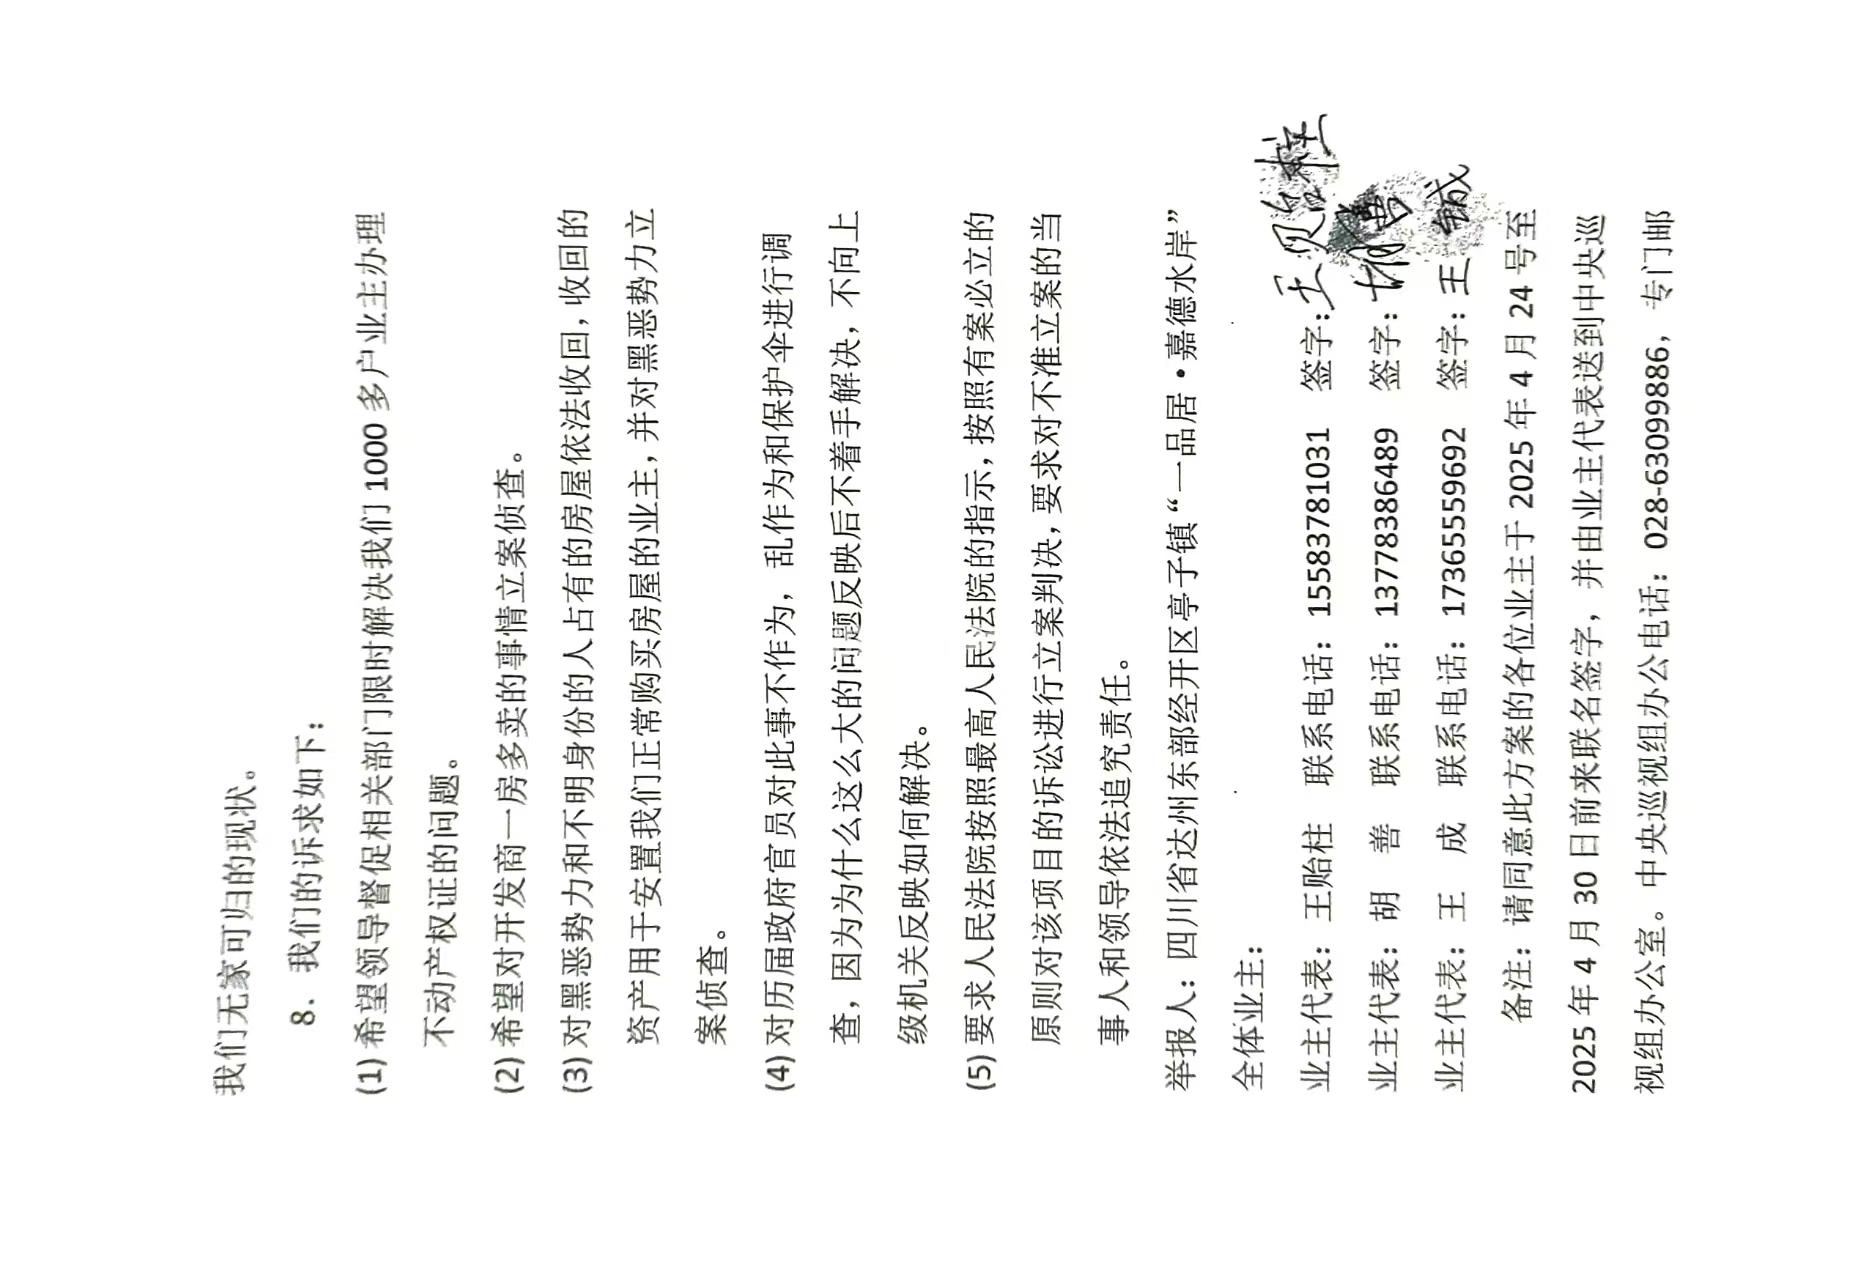 我们无家可归的现状。
8、我们的诉求如下：
(1) 希望领导督促相关部门限时解决我们 1000 多户业主办理
不动产权证的问题。
(2) 希望对开发商一房多卖的事情立案侦查。
(3) 对黑恶势力和不明身份的人占有的房屋依法收回，收回的
资产用于安置我们正常购买房屋的业主，并对黑恶势力立
案侦查。
(4) 对历届政府官员对此事不作为，乱作为和保护伞进行调
查，因为为什么这么大的问题反映后不着手解决，不向上
级机关反映如何解决。
(5) 要求人民法院按照最高人民法院的指示，按照有案必立的
原则对该项目的诉讼进行立案判决，要求对不准立案的当
事人和领导依法追究责任。
举报人：四川省达州东部经开区亭子镇“一品居·嘉德水岸”
全体业主：
业主代表：王贻柱 联系电话：15583781031 签字：王贻柱
业主代表：胡 善 联系电话：13778386489 签字：胡
业主代表：王 成 联系电话：17365559692 签字：王
备注：请同意此方案的各位业主于 2025 年 4 月 24 号至
2025 年 4 月 30 日前来联名签字，并由业主代表送到中央巡
视组办公室。中央巡视组办公电话：028-63099886，专门邮